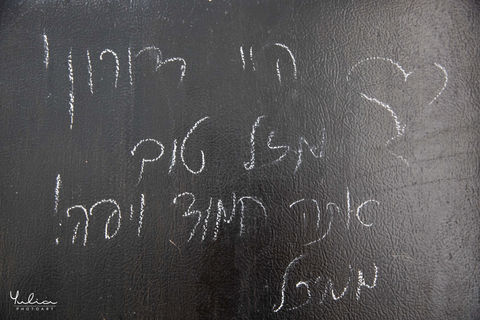 היי דורון!
מזל טוב
אתה חמוד ויפה!
ממיכל
Yulia
PHOTOART